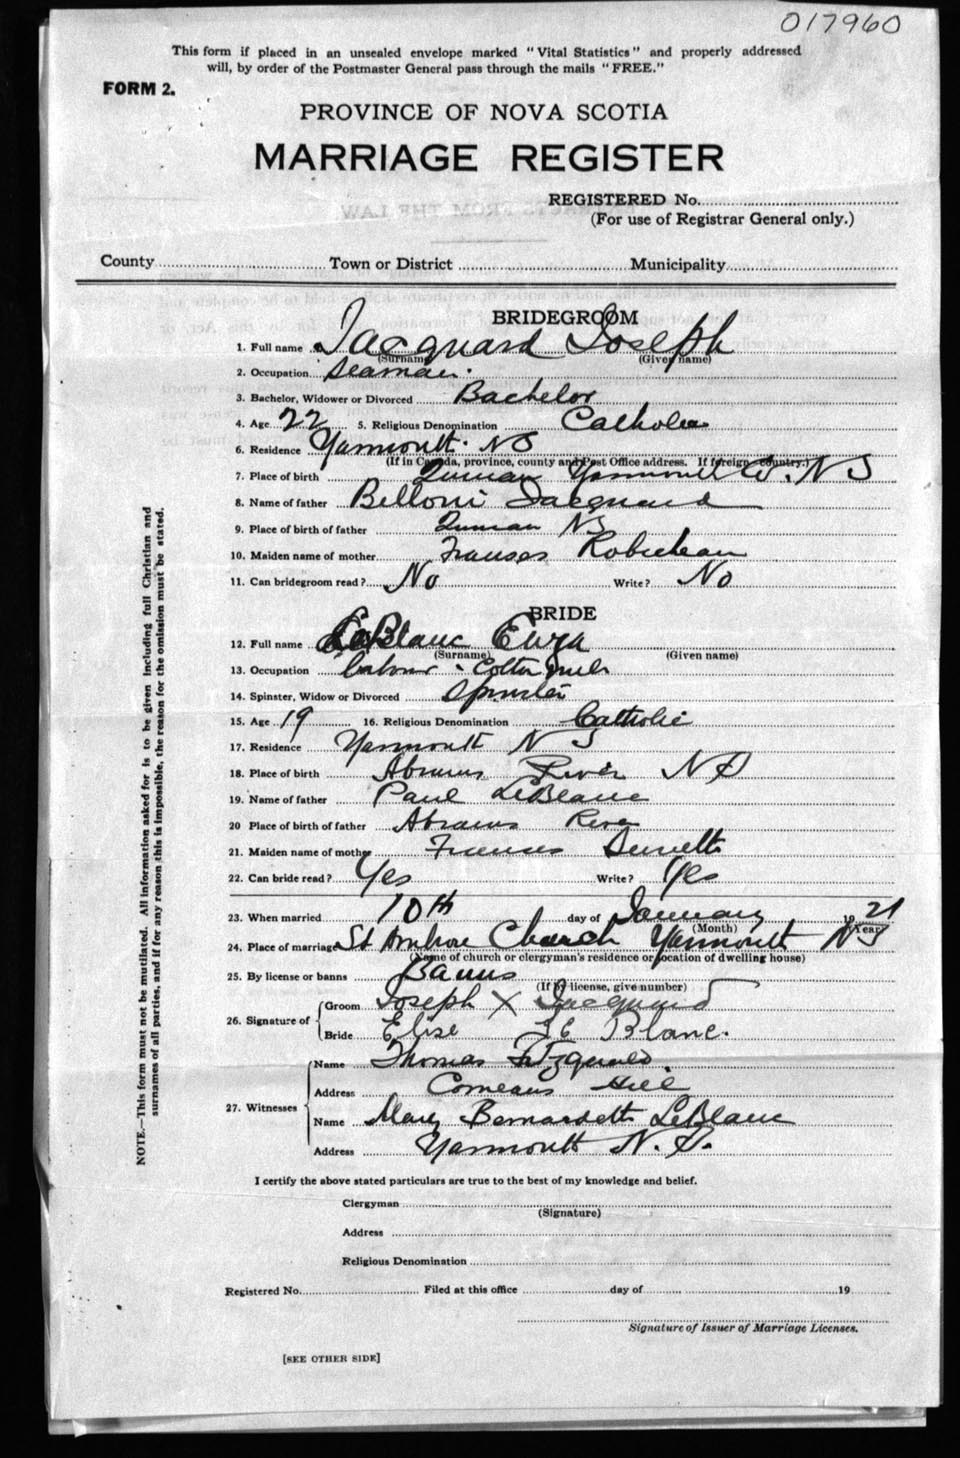 017960
This form if placed in an unsealed envelope marked "Vital Statistics" and properly addressed
will, by order of the Postmaster General pass through the mails "FREE."
FORM 2.
PROVINCE OF NOVA SCOTIA
MARRIAGE REGISTER
REGISTERED No.
(For use of Registrar General only.)
County Town or District Municipality
BRIDEGROOM
1. Full name Jacquard Joseph
(Surname) (Given name)
2. Occupation Seaman.
3. Bachelor, Widower or Divorced Bachelor
4. Age 22 5. Religious Denomination Catholic
6. Residence Yarmouth. NS
(If in Canada, province, county and Post Office address. If foreign country.)
7. Place of birth Yarmouth Co. NS
8. Name of father Jacquard
9. Place of birth of father NS
10. Maiden name of mother Robicheau
11. Can bridegroom read? No Write? No
BRIDE
12. Full name LeBlanc
(Surname) (Given name)
13. Occupation Labour - Cotton Mill
14. Spinster, Widow or Divorced Spinster
15. Age 19 16. Religious Denomination Catholic
17. Residence Yarmouth N S
18. Place of birth Abrams River NS
19. Name of father Paul LeBlanc
20 Place of birth of father Abrams River
21. Maiden name of mother
22. Can bride read? Yes Write? Yes
23. When married 10th day of January 1921
(Month) (Year)
24. Place of marriage St Ambrose Church Yarmouth NS
(Name of church or clergyman's residence or location of dwelling house)
25. By license or banns Banns
(If by license, give number)
Groom Joseph X Jacquard
26. Signature of
Bride Elise Le Blanc.
Name Thomas Fitzgerald.
Address Comeaus Hill
27. Witnesses
Name Mary Bernardette LeBlanc
Address Yarmouth N. S.
I certify the above stated particulars are true to the best of my knowledge and belief.
Clergyman
(Signature)
Address
Religious Denomination
Registered No. Filed at this office day of 19
Signature of Issuer of Marriage Licenses.
[SEE OTHER SIDE]
NOTE.—This form must not be mutilated. All information asked for is to be given including full Christian and
surnames of all parties, and if for any reason this is impossible, the reason for the omission must be stated.